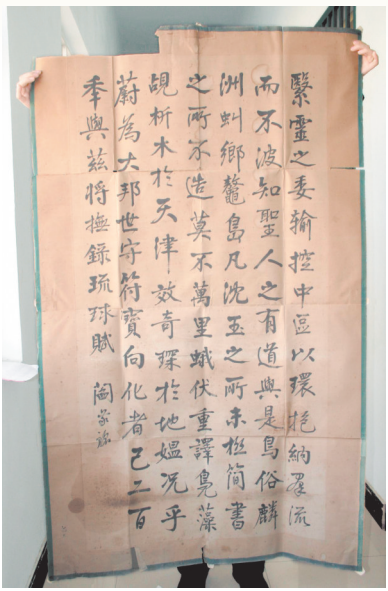 繄靈之委输控中區以環抱納羣流
而不波知聖人之有道與是鳥俗麟
洲虯鄉鼇島凡沈玉之所未極簡書
之所不造莫不萬里蛾伏重譯鳧藻
覘析木於天津效奇琛於地媼況乎
蔚為大邦世守符寶向化者已二百
季與茲將撫錄琉球賦